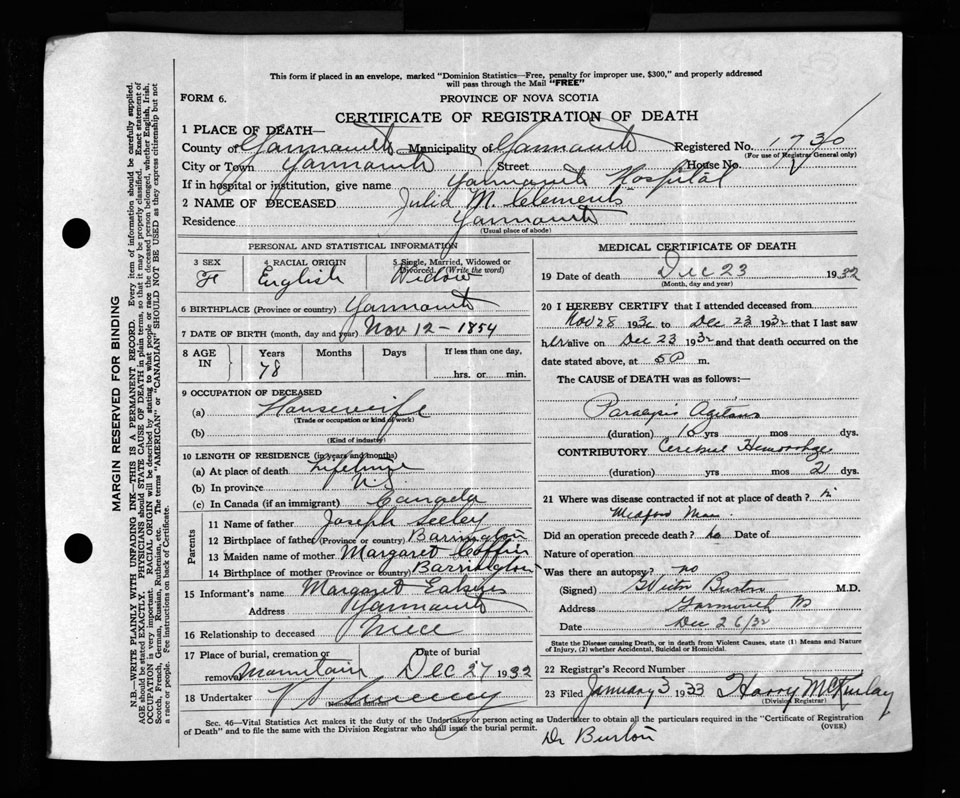 This form if placed in an envelope, marked "Dominion Statistics—Free, penalty for improper use, $300," and properly addressed
will pass through the Mail "FREE"
FORM 6.
PROVINCE OF NOVA SCOTIA
CERTIFICATE OF REGISTRATION OF DEATH
1 PLACE OF DEATH—
County of Yarmouth Municipality of Yarmouth Registered No. 1730
(For use of Registrar General only)
City or Town Yarmouth Street House No.
If in hospital or institution, give name Yarmouth Hospital
2 NAME OF DECEASED Julia M. Clements
Residence Yarmouth
(Usual place of abode)
PERSONAL AND STATISTICAL INFORMATION
3 SEX 4 RACIAL ORIGIN 5 Single, Married, Widowed or
Divorced. (Write the word)
F English Widow
6 BIRTHPLACE (Province or country) Yarmouth
7 DATE OF BIRTH (month, day and year) Nov 12 - 1854
8 AGE IN Years Months Days If less than one day,
78 hrs. or min.
9 OCCUPATION OF DECEASED
(a) Housewife
(Trade or occupation or kind of work)
(b)
(Kind of industry)
10 LENGTH OF RESIDENCE (in years and months)
(a) At place of death Lifetime
(b) In province
(c) In Canada (if an immigrant) Canada
Parents
11 Name of father Joseph Seeley
12 Birthplace of father (Province or country) Barrington
13 Maiden name of mother Margaret Coffin
14 Birthplace of mother (Province or country) Barrington
15 Informant's name Margaret
Address Yarmouth
16 Relationship to deceased Niece
17 Place of burial, cremation or Date of burial
removal Mountain Dec 27 1932
18 Undertaker V S Sweeney
(Name and address)
MEDICAL CERTIFICATE OF DEATH
19 Date of death Dec 23 1932
(Month, day and year)
20 I HEREBY CERTIFY that I attended deceased from
Nov 28 1932 to Dec 23 1932 that I last saw
her alive on Dec 23 1932 and that death occurred on the
date stated above, at m.
The CAUSE of DEATH was as follows:—
Paralysis Agitans
(duration) 10 yrs mos dys.
CONTRIBUTORY Cerebral Hemorrhage
(duration) yrs mos 2 dys.
21 Where was disease contracted if not at place of death? in
Medford Mass.
Did an operation precede death? no Date of
Nature of operation
Was there an autopsy? no
(Signed) G Victor Burton M.D.
Address Yarmouth NS
Date Dec 26/32
State the Disease causing Death, or in death from Violent Causes, state (1) Means and Nature
of Injury, (2) whether Accidental, Suicidal or Homicidal.
22 Registrar's Record Number
23 Filed January 3 1933 Harry McKinlay
(Division Registrar)
Sec. 46—Vital Statistics Act makes it the duty of the Undertaker or person acting as Undertaker to obtain all the particulars required in the "Certificate of Registration
of Death" and to file the same with the Division Registrar who shall issue the burial permit. (OVER)
Dr Burton
MARGIN RESERVED FOR BINDING
N.B.—WRITE PLAINLY WITH UNFADING INK—THIS IS A PERMANENT RECORD. Every item of information should be carefully supplied.
AGE should be stated EXACTLY. PHYSICIANS should STATE CAUSE OF DEATH in plain terms, so that it may be properly classified. Exact statement of
OCCUPATION is very important. RACIAL ORIGIN will be described by stating to what people or race the deceased person belonged, whether English, Irish,
Scotch, French, German, Russian, Ruthenian, etc. The terms "AMERICAN" or "CANADIAN" SHOULD NOT BE USED as they express citizenship but not
a race or people. Fee instructions on back of Certificate.